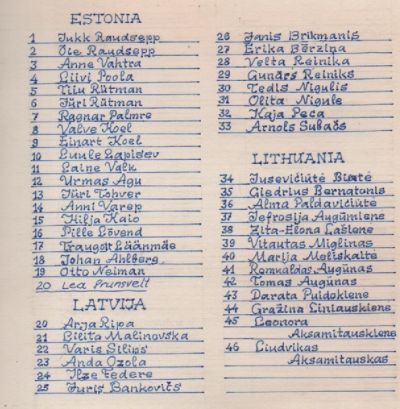 ESTONIA
1 Jukk Raudsepp
2 Õie Raudsepp
3 Anne Vahtra
4 Liivi Poola
5 Tiiu Rütman
6 Jüri Rütman
7 Ragnar Palmre
8 Valve Koel
9 Einart Koel
10 Luule Lapisev
11 Laine Valk
12 Urmas Agu
13 Jüri Tohver
14 Anni Varep
15 Hilja Kaio
16 Pille Lõvend
17 Traugott Läänmäe
18 Johan Ahlberg
19 Otto Neiman
20 Lea Prunsvelt
LATVIJA
20 Arja Ripa
21 Lilita Malinovska
22 Varis Siliņš
23 Anda Ozola
24 Ilze Federe
25 Juris Bankovičs
26 Janis Brikmanis
27 Ērika Bērziņa
28 Velta Reinika
29 Gunārs Reiniks
30 Tedis Nigulis
31 Olita Nigule
32 Kaja Peca
33 Arnols Subačs
LITHUANIA
34 Jusevičiūtė Birutė
35 Giedrius Bernatonis
36 Alma Paldavičiūtė
37 Jefrosija Augūnienė
38 Zita-Elona Lašienė
39 Vitautas Miglinas
40 Marija Moliskaitė
41 Romualdas Augūnas
42 Tomas Augūnas
43 Darata Puidokienė
44 Gražina Liniauskienė
45 Leonora
Aksamitauskienė
46 Liudvikas
Aksamitauskas